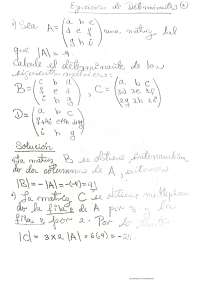 Ejercicios de Determinantes
1) Sea A = (a b c
d e f
g h i) una matriz tal
que |A| = -4
Calcule el determinante de las
siguientes matrices:
B = (c b a
f e d
i h g), C = (a b c
3d 3e 3f
2g 2h 2i)
D = (a b c
g h i)
Solución
La matriz B se obtiene intercambian
do dos columnas de A, entonces
|B| = -|A| = -(-4) = 4
La matriz C se obtiene multiplican
do la fila 2 de A por 3 y la
fila 3 por 2. Por lo tanto
|C| = 3×2 |A| = 6(-4) = -24